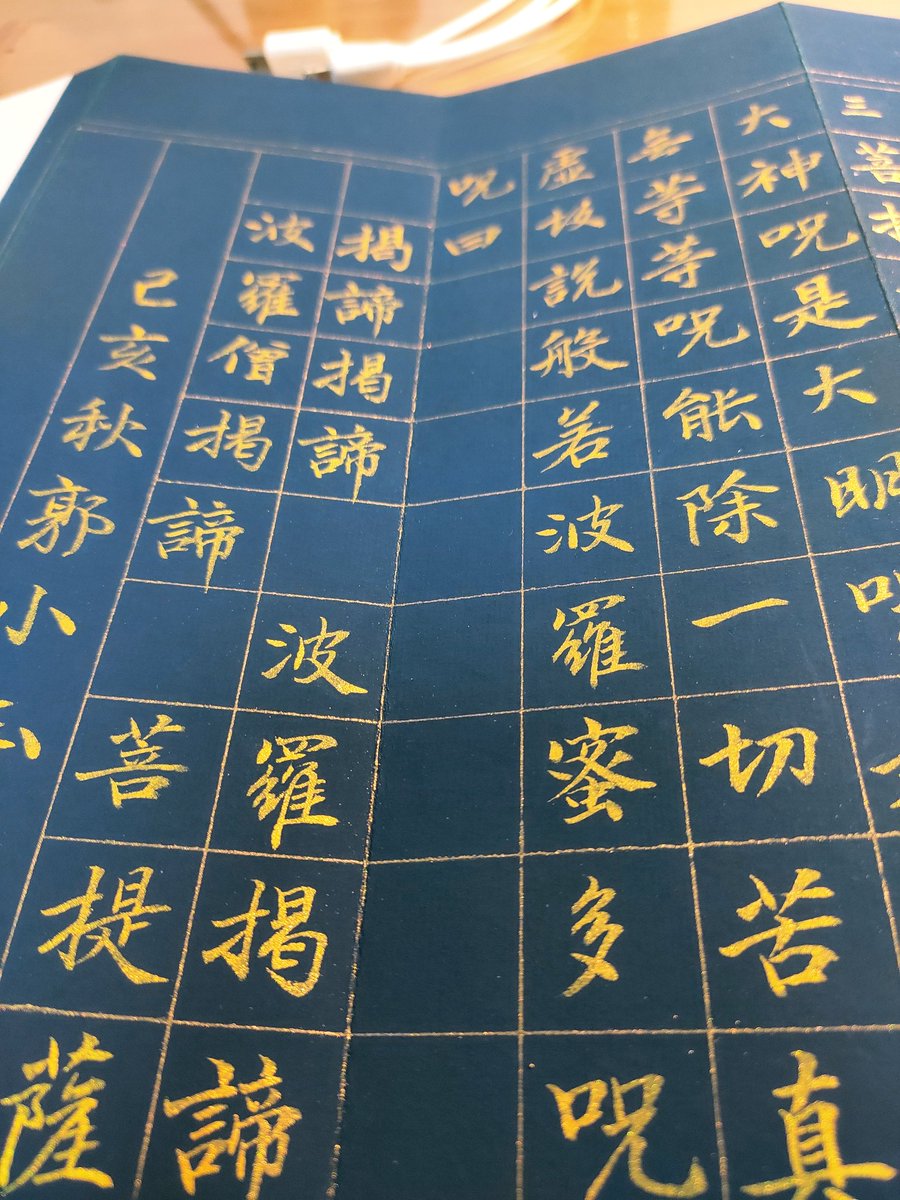 三菩
大神呪是大明呪
無等等呪能除一切苦真
虛故說般若波羅蜜多呪
呪曰
揭諦揭諦 波羅揭諦
波羅僧揭諦 菩提薩
己亥秋郭小